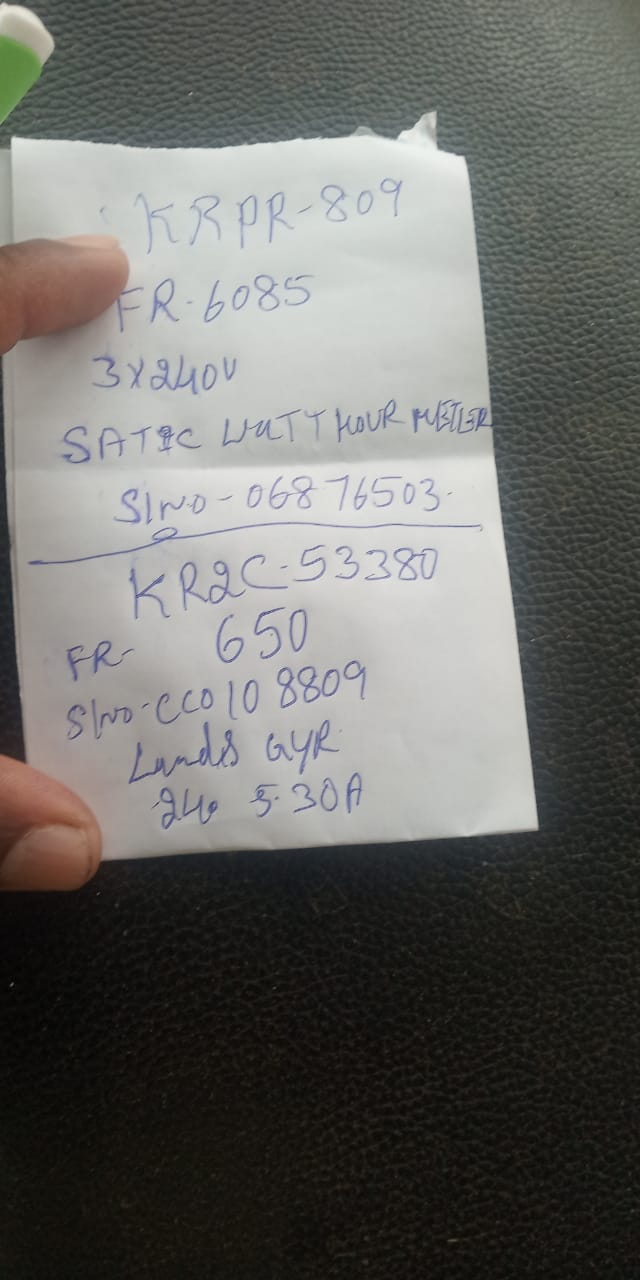 KRPR-809
FR-6085
3X240V
SATIC WATT HOUR METER
SlNO-06876503
KR2C-53380
FR- 650
SlNO-CC0108809
Lands GYR
240 5-30A